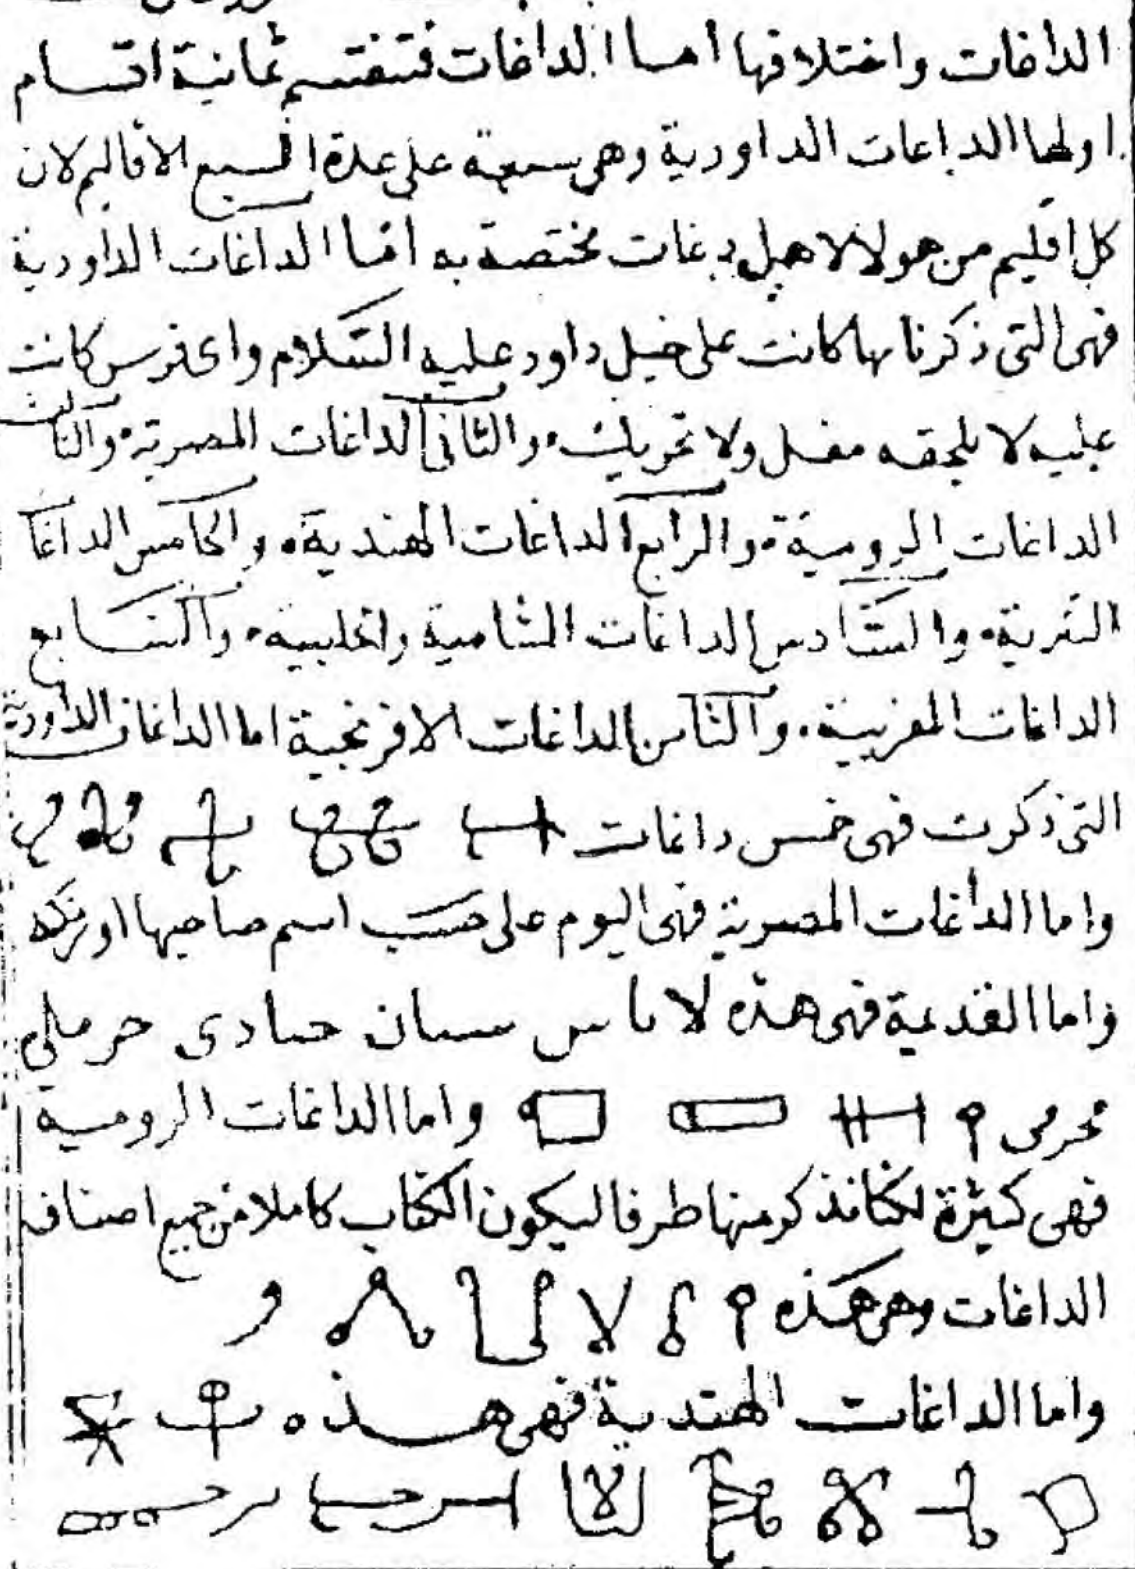 الداغات واختلافها اما الداغات فتنقسم ثمانية اقسام
اولها الداغات الداودية وهى سبعة على عدة السبع الاقاليم لان
كل اقليم من هولا لاهل دغات مختصة به اما الداغات الداودية
فهى التى ذكرنا بها كانت على خيل داود عليه السلام واى فرس كانت
عليه لا يلحقه مغل ولا تحريك والثانى الداغات المصرية والثالث
الداغات الرومية والرابع الداغات الهندية والخامس الداغات
التترية والسادس الداغات الشامية والحلبية والسابع
الداغات المغربية والثامن الداغات الافرنجية اما الداغات الداودية
التى ذكرت فهى خمس داغات
واما الداغات المصرية فهى اليوم على حسب اسم صاحبها او رنكه
واما القديمة فهى هذه لا حرملى
محرمى واما الداغات الرومية
فهى كثيرة لكنا نذكر منها طرفا ليكون الكتاب كاملا من جميع اصنافه
الداغات وهى هذه
واما الداغات الهندية فهى هذه